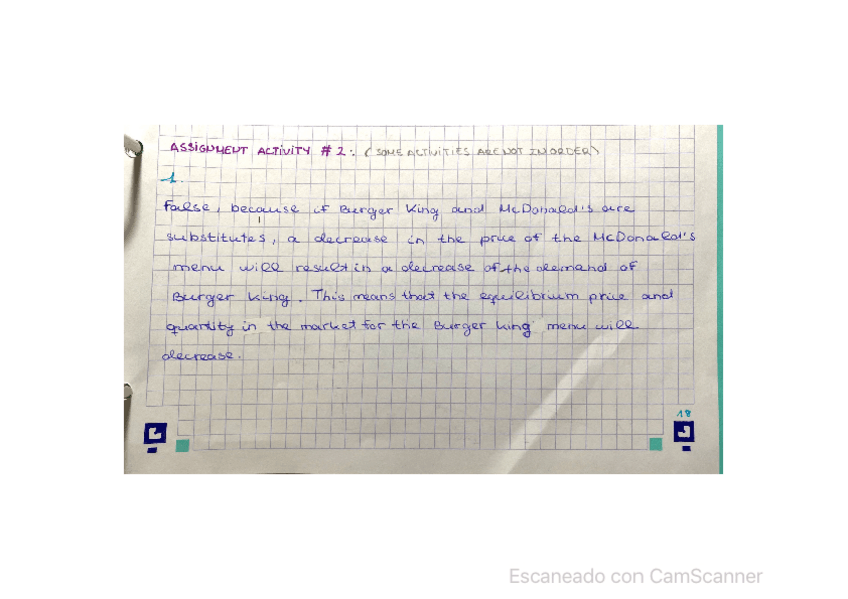 ASSIGNMENT ACTIVITY # 2: (SOME ACTIVITIES ARE NOT IN ORDER)
1.
False, because if Burger King and McDonald's are
substitutes, a decrease in the price of the McDonald's
menu will result in a decrease of the demand of
Burger King. This means that the equilibrium price and
quantity in the market for the Burger King menu will
decrease.
18
Escaneado con CamScanner